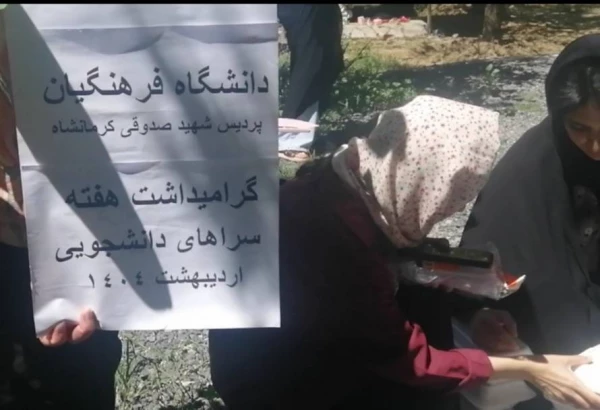 دانشگاه فرهنگیان
پردیس شهید صدوقی کرمانشاه
گرامیداشت هفته
سراهای دانشجویی
اردیبهشت ۱۴۰۴